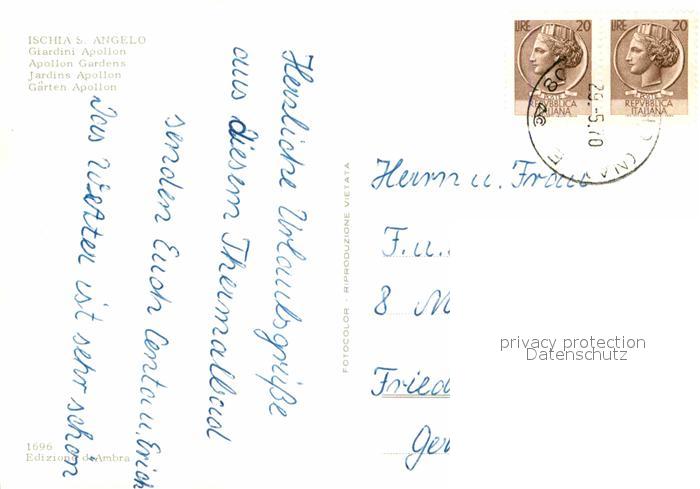 ISCHIA S. ANGELO
Giardini Apollon
Apollon Gardens
Jardins Apollon
Gärten Apollon
Herzliche Urlaubsgrüße
aus diesem Thermalbad
senden Euch Centa u. Erich
Das Wetter ist sehr schön
1696
Edizione d'Ambra
FOTOCOLOR - RIPRODUZIONE VIETATA
LIRE 20
POSTE
REPVBBLICA
ITALIANA
LIRE 20
POSTE
REPVBBLICA
ITALIANA
26.-5.70
Herrn u. Frau
F. u.
8 M
privacy protection
Datenschutz
Fried
Ger